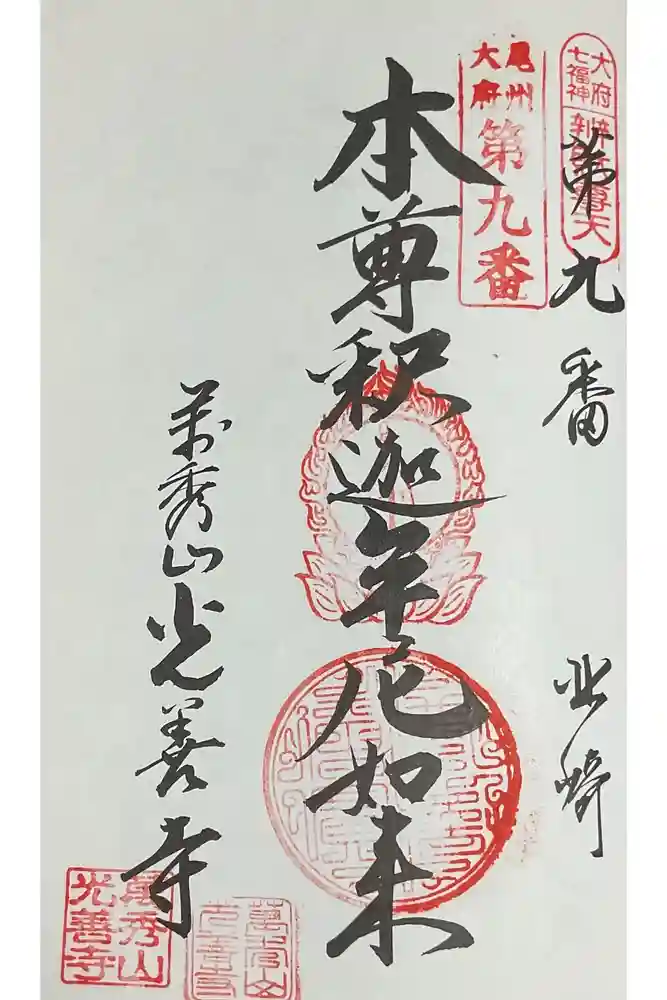 大府
七福神
尊天
第九番 北崎
尾州
大府
第九番
本尊釈迦牟尼如来
萬秀山光善寺
萬秀山
光善寺